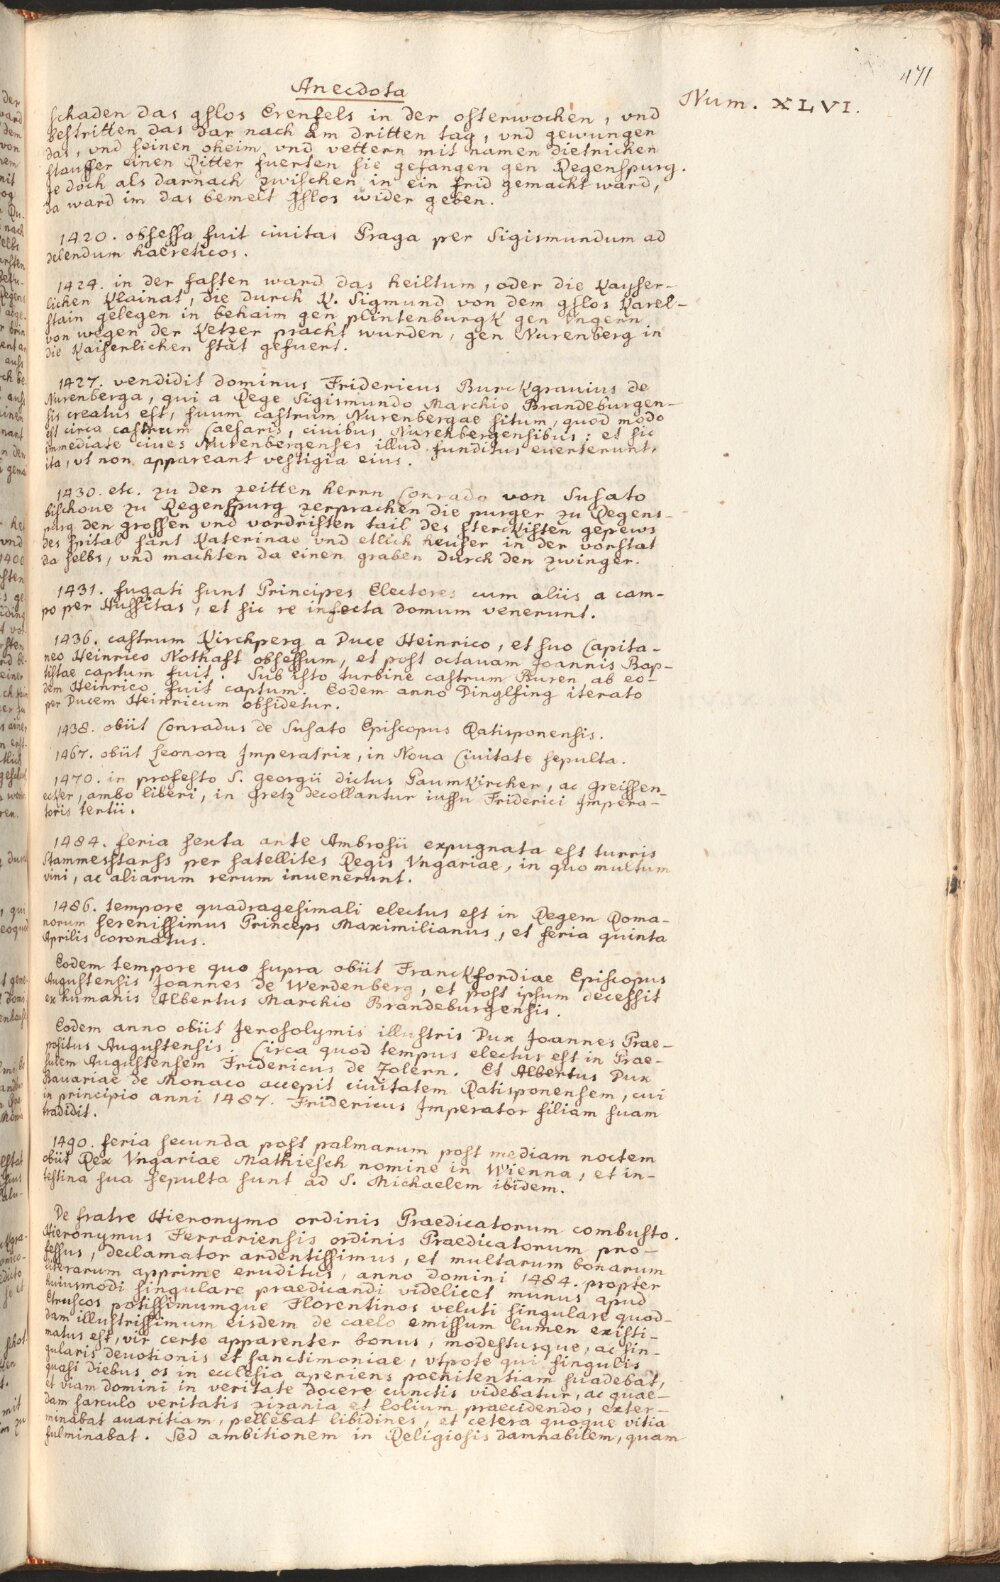 471
Anecdota
Num. XLVI.
schaden das gslos Erenfels in der osterwochen, vnd
bestritten das dar nach am dritten tag, vnd gewungen
das, vnd seinen oheim vnd vettern mit namen dietrichen
stauffer einen Ritter fuerten sie gefangen gen Regenspurg.
je doch als darnach zwischen in ein frid gemacht ward,
da ward im das bemelt gslos wider geben.
1420. obsessa fuit civitas Praga per Sigismundum ad
delendum haereticos.
1424. in der fasten ward das heiltum, oder die Kayser-
lichen Klainat, die durch K. Sigmund von dem gslos Karel-
stain gelegen in behaim gen plintenburgk gen Vngern
von wegen der Ketzer pracht wurden, gen Nurenberg in
die Kaiserlichen stat gefuert.
1427. vendidit dominus Fridericus Burckgravius de
Nurenberga, qui a Rege Sigismundo Marchio Brandeburgen-
sis creatus est, suum castrum Nurenbergae situm, quod modo
est circa castrum Caesaris, civibus Nurenbergensibus: et sic
immediate ciues Nurenbergenses illud funditus euerterunt,
ita, vt non appareant vestigia eius.
1430. etc. zu den zeitten herrn Conrado von Susato
bischoue zu Regenspurg zerprachen die purger zu Regens-
purg den grossen vnd vordristen tail des sterckisten gepews
des spital sant Katerinae vnd etlich heuser in der vorstat
da selbs, vnd machten da einen graben durch den zwinger.
1431. fugati sunt Principes Electores cum aliis a cam-
po per Hussitas, et sic re infecta domum venerunt.
1436. castrum Kirchperg a Duce Heinrico, et suo Capita-
neo Heinrico Nothaft obsessum, et post octauam Joannis Bap-
tistae captum fuit. Sub isto turbine castrum Buren ab eo-
dem Heinrico fuit captum. Eodem anno Dinglfing iterato
per Ducem Heinricum obsidetur.
1438. obiit Conradus de Susato Episcopus Ratisponensis.
1467. obiit Leonora Imperatrix, in Noua Ciuitate sepulta.
1470. in profesto S. Georgii dictus Paumkircher, ac Greissen-
ecker, ambo liberi, in Gretz decollantur iussu Friderici Impera-
toris tertii.
1484. feria sexta ante Ambrosii expugnata est turris
Stammerstarss per satellites Regis Vngariae, in quo multum
vini, ac aliarum rerum inuenerunt.
1486. tempore quadragesimali electus est in Regem Roma-
norum serenissimus Princeps Maximilianus, et feria quinta
Aprilis coronatus.
Eodem tempore quo supra obiit Franckfordiae Episcopus
Augustensis Joannes de Werdenberg, et post ipsum decessit
ex humanis Albertus Marchio Brandeburgensis.
Eodem anno obiit Jerosolymis illustris Dux Joannes Prae-
positus Augustensis. Circa quod tempus electus est in Prae-
sulem Augustensem Fridericus de Zolern. Et Albertus Dux
Bauariae de Monaco accepit ciuitatem Ratisponensem, cui
in principio anni 1487. Fridericus Imperator filiam suam
tradidit.
1490. feria secunda post palmarum post mediam noctem
obiit Rex Vngariae Mathiesch nomine in Wienna, et in-
testina sua sepulta sunt ad S. Michaelem ibidem.
De fratre Hieronymo ordinis Praedicatorum combusto.
Hieronymus Ferrariensis ordinis Praedicatorum pro-
fessus, declamator ardentissimus, et multarum bonarum
literarum apprime eruditus, anno domini 1484. propter
huiusmodi singulare praedicandi videlicet munus apud
Etruscos potissimumque Florentinos veluti singulare quod-
dam illustrissimum eisdem de caelo emissum lumen existi-
matus est, vir certe apparenter bonus, modestusque, ac sin-
gularis deuotionis et sanctimoniae, vtpote qui singulis
quasi diebus os in ecclesia aperiens poenitentiam suadebat,
et viam domini in veritate docere cunctis videbatur, ac quae-
dam sarculo veritatis zizania et lolium praecidendo, exter-
minabat auaritiam, pellebat libidines, et cetera quoque vitia
fulminabat. Sed ambitionem in Religiosis damnabilem, quam